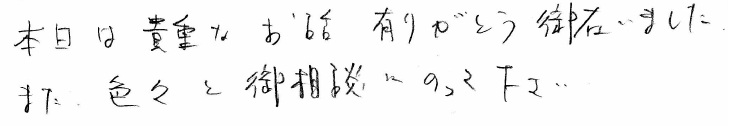 本日は貴重なお話有りがとう御座いました.
また.色々と御相談にのって下さい